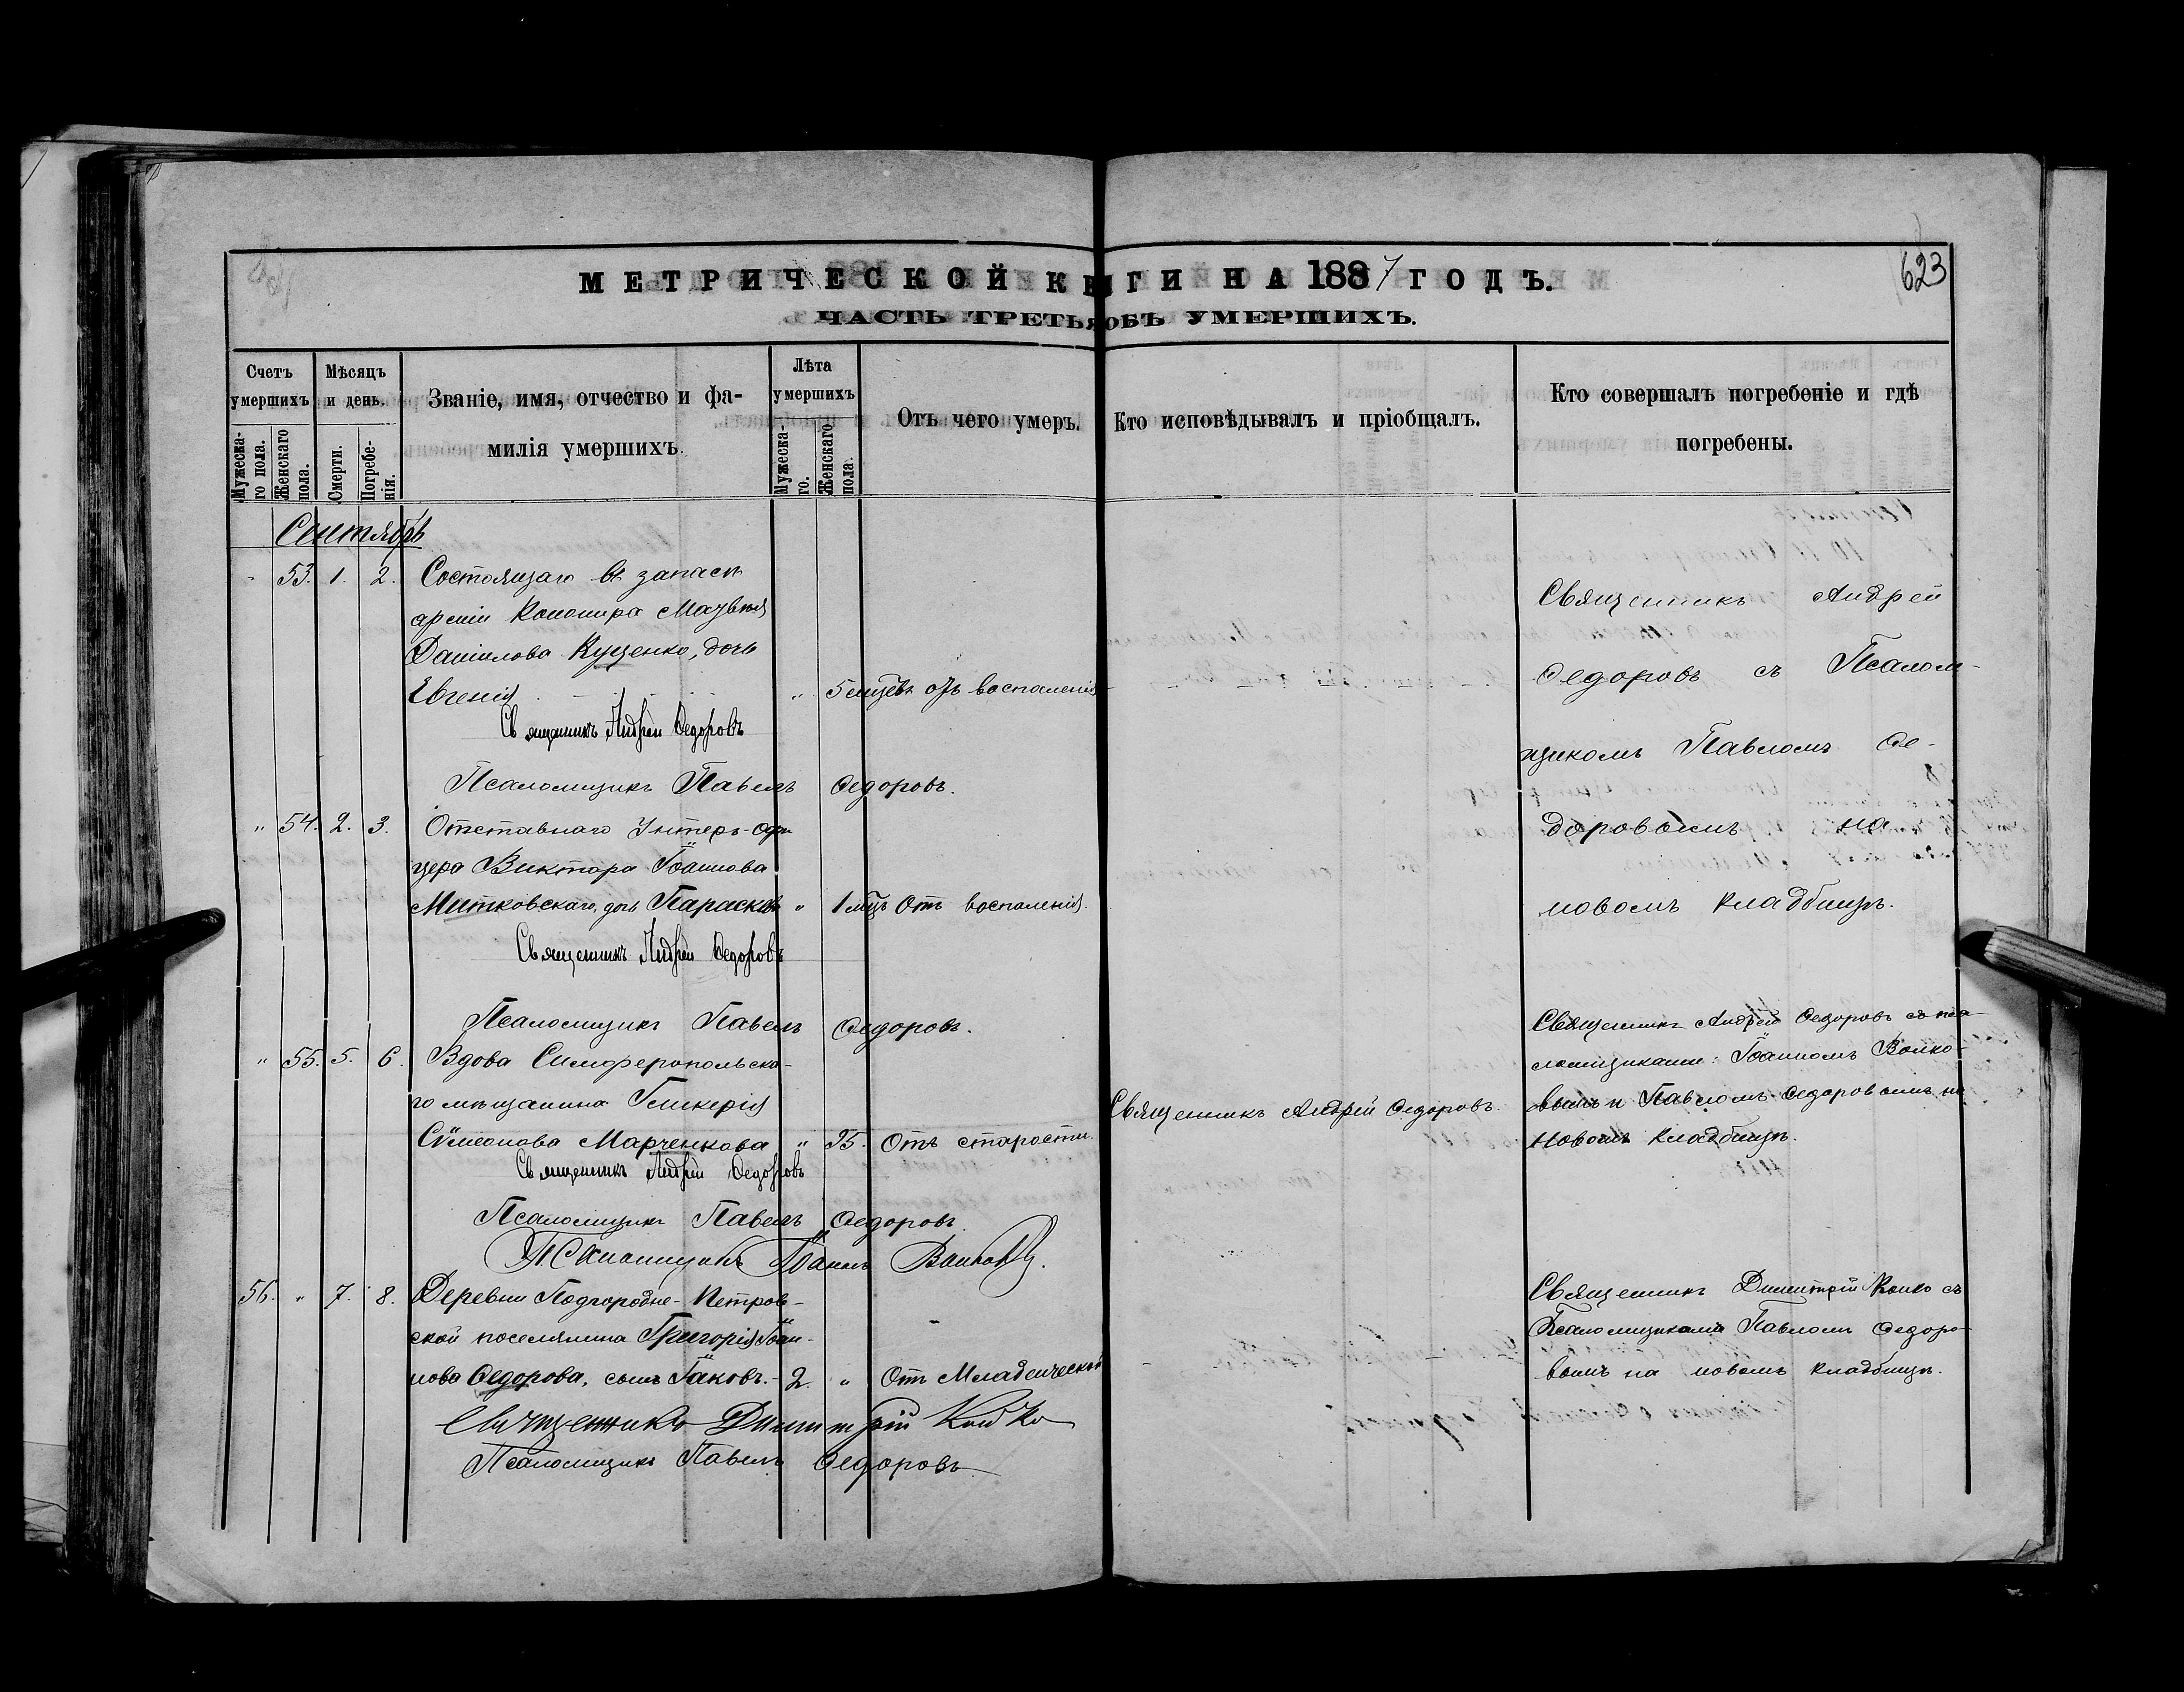 623
МЕТРИЧЕСКОЙ КНИГИ НА 1887 ГОДЪ.
ЧАСТЬ ТРЕТЬЯ ОБЪ УМЕРШИХЪ.
Счетъ умершихъ
Мужеска-го пола.
Женскаго пола.
Мѣсяцъ и день.
Смерти.
Погребе-нія.
Званіе, имя, отчество и фа-
милія умершихъ.
Лѣта умершихъ
Мужеска-го.
Женскаго пола.
Отъ чего умеръ.
Кто исповѣдывалъ и пріобщалъ.
Кто совершалъ погребеніе и гдѣ
погребены.
Сентябрь
" 53. 1. 2. Состоящаго въ запасѣ
арміи Канонира
Даніилова Куценко, дочь
Евгенія " 5 мцевъ отъ воспаленія
Священникъ Андрей Ѳедоровъ
Псаломщикъ Павелъ Ѳедоровъ.
Священникъ Андрей
Ѳедоровъ съ Псалом-
щикомъ Павломъ Ѳе-
доровымъ на
новомъ кладбищѣ.
" 54. 2. 3. Отставнаго Унтеръ-Офи
цера Виктора Іоаннова
Митковскаго, дочь Параскева " 1 мцъ Отъ воспаленія.
Священникъ Андрей Ѳедоровъ
Псаломщикъ Павелъ Ѳедоровъ.
" 55. 5. 6. Вдова Симферопольска-
го мѣщанина Гликерія
Сѵмеонова Марченкова " 95. Отъ старости.
Священникъ Андрей Ѳедоровъ.
Священникъ Андрей Ѳедоровъ съ пса-
ломщиками: Іоанномъ Волко-
вымъ и Павломъ Ѳедоровымъ на
новомъ кладбищѣ.
Священникъ Андрей Ѳедоровъ
Псаломщикъ Павелъ Ѳедоровъ.
Псаломщикъ Іоаннъ
56. " 7. 8. Деревни Подгородне-Петров-
ской поселянина Григорія Іоан-
нова Ѳедорова, сынъ Іаковъ. - 2. " Отъ Младенческой
Священникъ Димитрій Койко съ
Псаломщикомъ Павломъ Ѳедоро-
вымъ на новомъ кладбищѣ.
Священникъ Димитрій Койко
Псаломщикъ Павелъ Ѳедоровъ